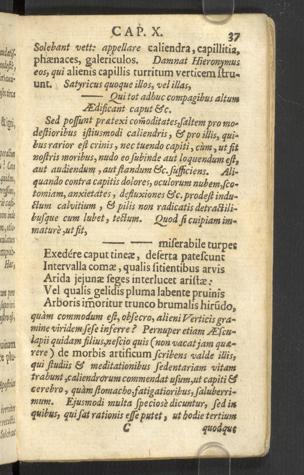 CAP. X. 37
Solebant vett: appellare caliendra, capillitia,
phænaces, galericulos. Damnat Hieronymus
eos, qui alienis capillis turritum verticem ſtru-
unt. Satyricus quoque illos, vel illas,
—— Qui tot adhuc compagibus altum
Ædificant caput &c.
Sed poſſunt prætexi com̃oditates, ſaltem pro mo-
deſtioribus iſtiusmodi caliendris, & pro illis, qui-
bus rarior eſt crinis, nec tuendo capiti, cùm, ut fit
noſtris moribus, nudo eo ſubinde aut loquendum eſt,
aut audiendum, aut ſtandum &c. ſufficiens. Ali-
quando contra capitis dolores, oculorum nubem, ſco-
tomiam, anxietates, defluxiones &c. prodeſt indu-
ctum calvitium, & pilis non radicatis detractili-
buſque cum lubet, tectum. Quod ſi cuipiam im-
maturè, ut fit,
—— —— miſerabile turpes
Exedére caput tineæ, deſerta pateſcunt
Intervalla comæ, qualis ſitientibus arvis
Arida jejunæ ſeges interlucet ariſtæ:
Vel qualis gelidis pluma labente pruinis
Arboris im̃oritur trunco brumalis hirũdo,
quàm commodum eſt, obſecro, alieni Verticis gra-
mine viridem ſeſe inferre? Pernuper etiam Æſcu-
lapii quidam filius, neſcio quis (non vacat jam quæ-
rere) de morbis artificum ſcribens valde illis,
qui ſtudiis & meditationibus ſedentariam vitam
trahunt, caliendrorum commendat uſum, ut capiti &
cerebro, quàm ſtomacho, fatigatioribus, ſaluberri-
mum. Ejusmodi multa ſpeciosè dicuntur, ſed in
quibus, qui ſat rationis eſſe putet, ut hodie tertium
C quodque